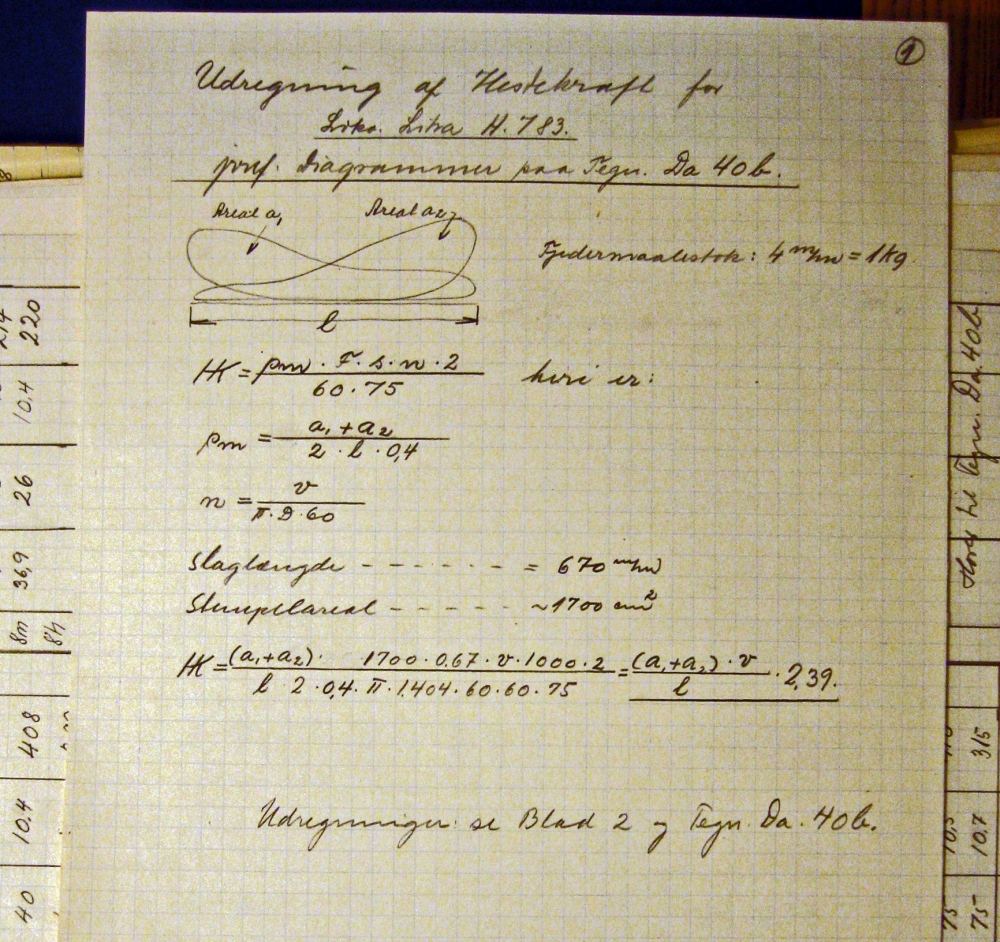 1
Udregning af Hestekraft for
Loko. Litra H. 783.
jvnf. Diagrammer paa Tegn. Da 40b.
Areal a₁ Areal a₂
Fjedermaalestok: 4 m/m = 1 kg
l
HK = pm · F · s · n · 2 / 60 · 75 heri er:
pm = a₁ + a₂ / 2 · l · 0,4
n = v / π · D · 60
Slaglængde - - - - - - - = 670 m/m
Stempelareal - - - - - ~1700 cm²
HK = (a₁+a₂) · 1700 · 0,67 · v · 1000 · 2 / l 2 · 0,4 · π · 1,404 · 60 · 60 · 75 = (a₁+a₂) · v / l · 2,39.
Udregninger se Blad 2 og Tegn. Da. 40b.
220
10,4
26
36,9
8m
8h
408
10.4
40
til Tegn. Da. 40b
315
10,5
10.7
75
75